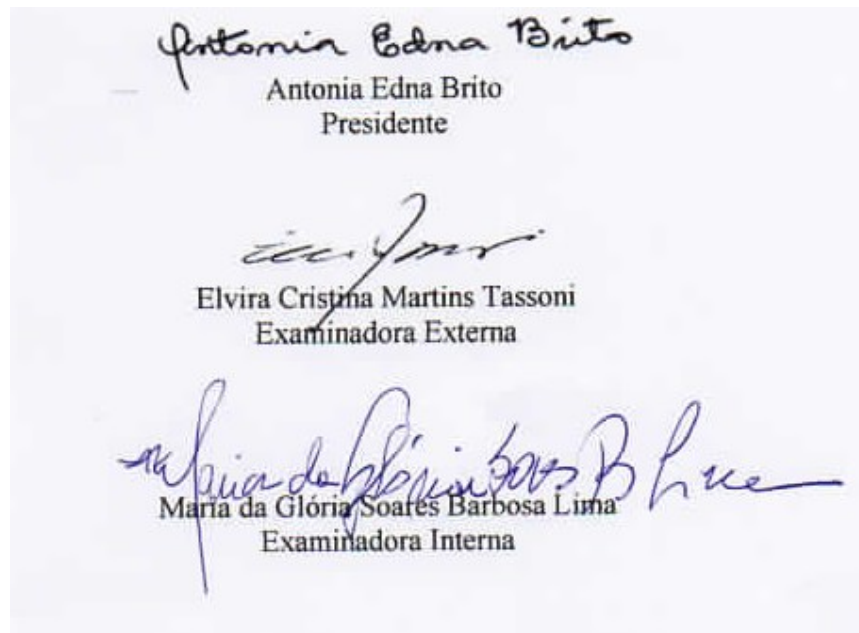 Antonia Edna Brito
Antonia Edna Brito
Presidente
Elvira Cristina Martins Tassoni
Examinadora Externa
Maria da Glória Soares B Lima
Maria da Glória Soares Barbosa Lima
Examinadora Interna